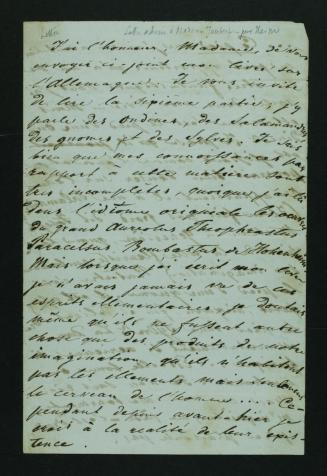 Lettre adressée à Madame Jaubert par Heine
J'ai l'honneur, Madame, de vous
envoyer ci joint mon livre sur
l'Allemagne. Je vous invite
de lire la sixième partie, j'y
parle des Ondines, des Salamandres
des gnomes et des Sylves. Je sais
bien que mes connaissances par
rapport à cette matière sont
très incomplètes, quoique j'ai lu
dans l'idiome originale les œuvres
du grand Aureolus Theophrastus
Paracelsus Bombastus de Hohenheim
Mais lorsque j'ai écrit mon livre
je n'avais jamais vu de ces
esprits élémentaires, je doutais
même qu'ils ne fussent autre
chose que des produits de notre
imagination, qu'ils n'habitent
pas les éléments mais seulement
le cerveau de l'homme.... Ce-
pendant depuis avant-hier je
crois à la réalité de leur exis-
tence.